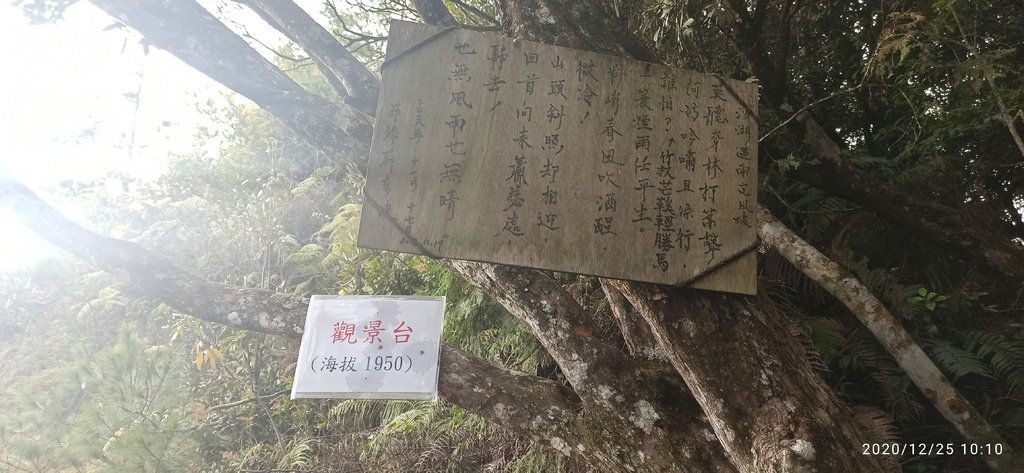 沙湖遇雨定風波
莫聽穿林打葉聲
何妨吟嘯且徐行.
誰怕?竹杖芒鞋輕勝馬
蓑煙雨任平生。
料峭春風吹酒醒
微冷!
山頭斜照却相迎
回首向來蕭瑟處
歸去!
也無風雨也無晴。
十一月十七日
觀景台
(海拔1950)
2020/12/25 10:10